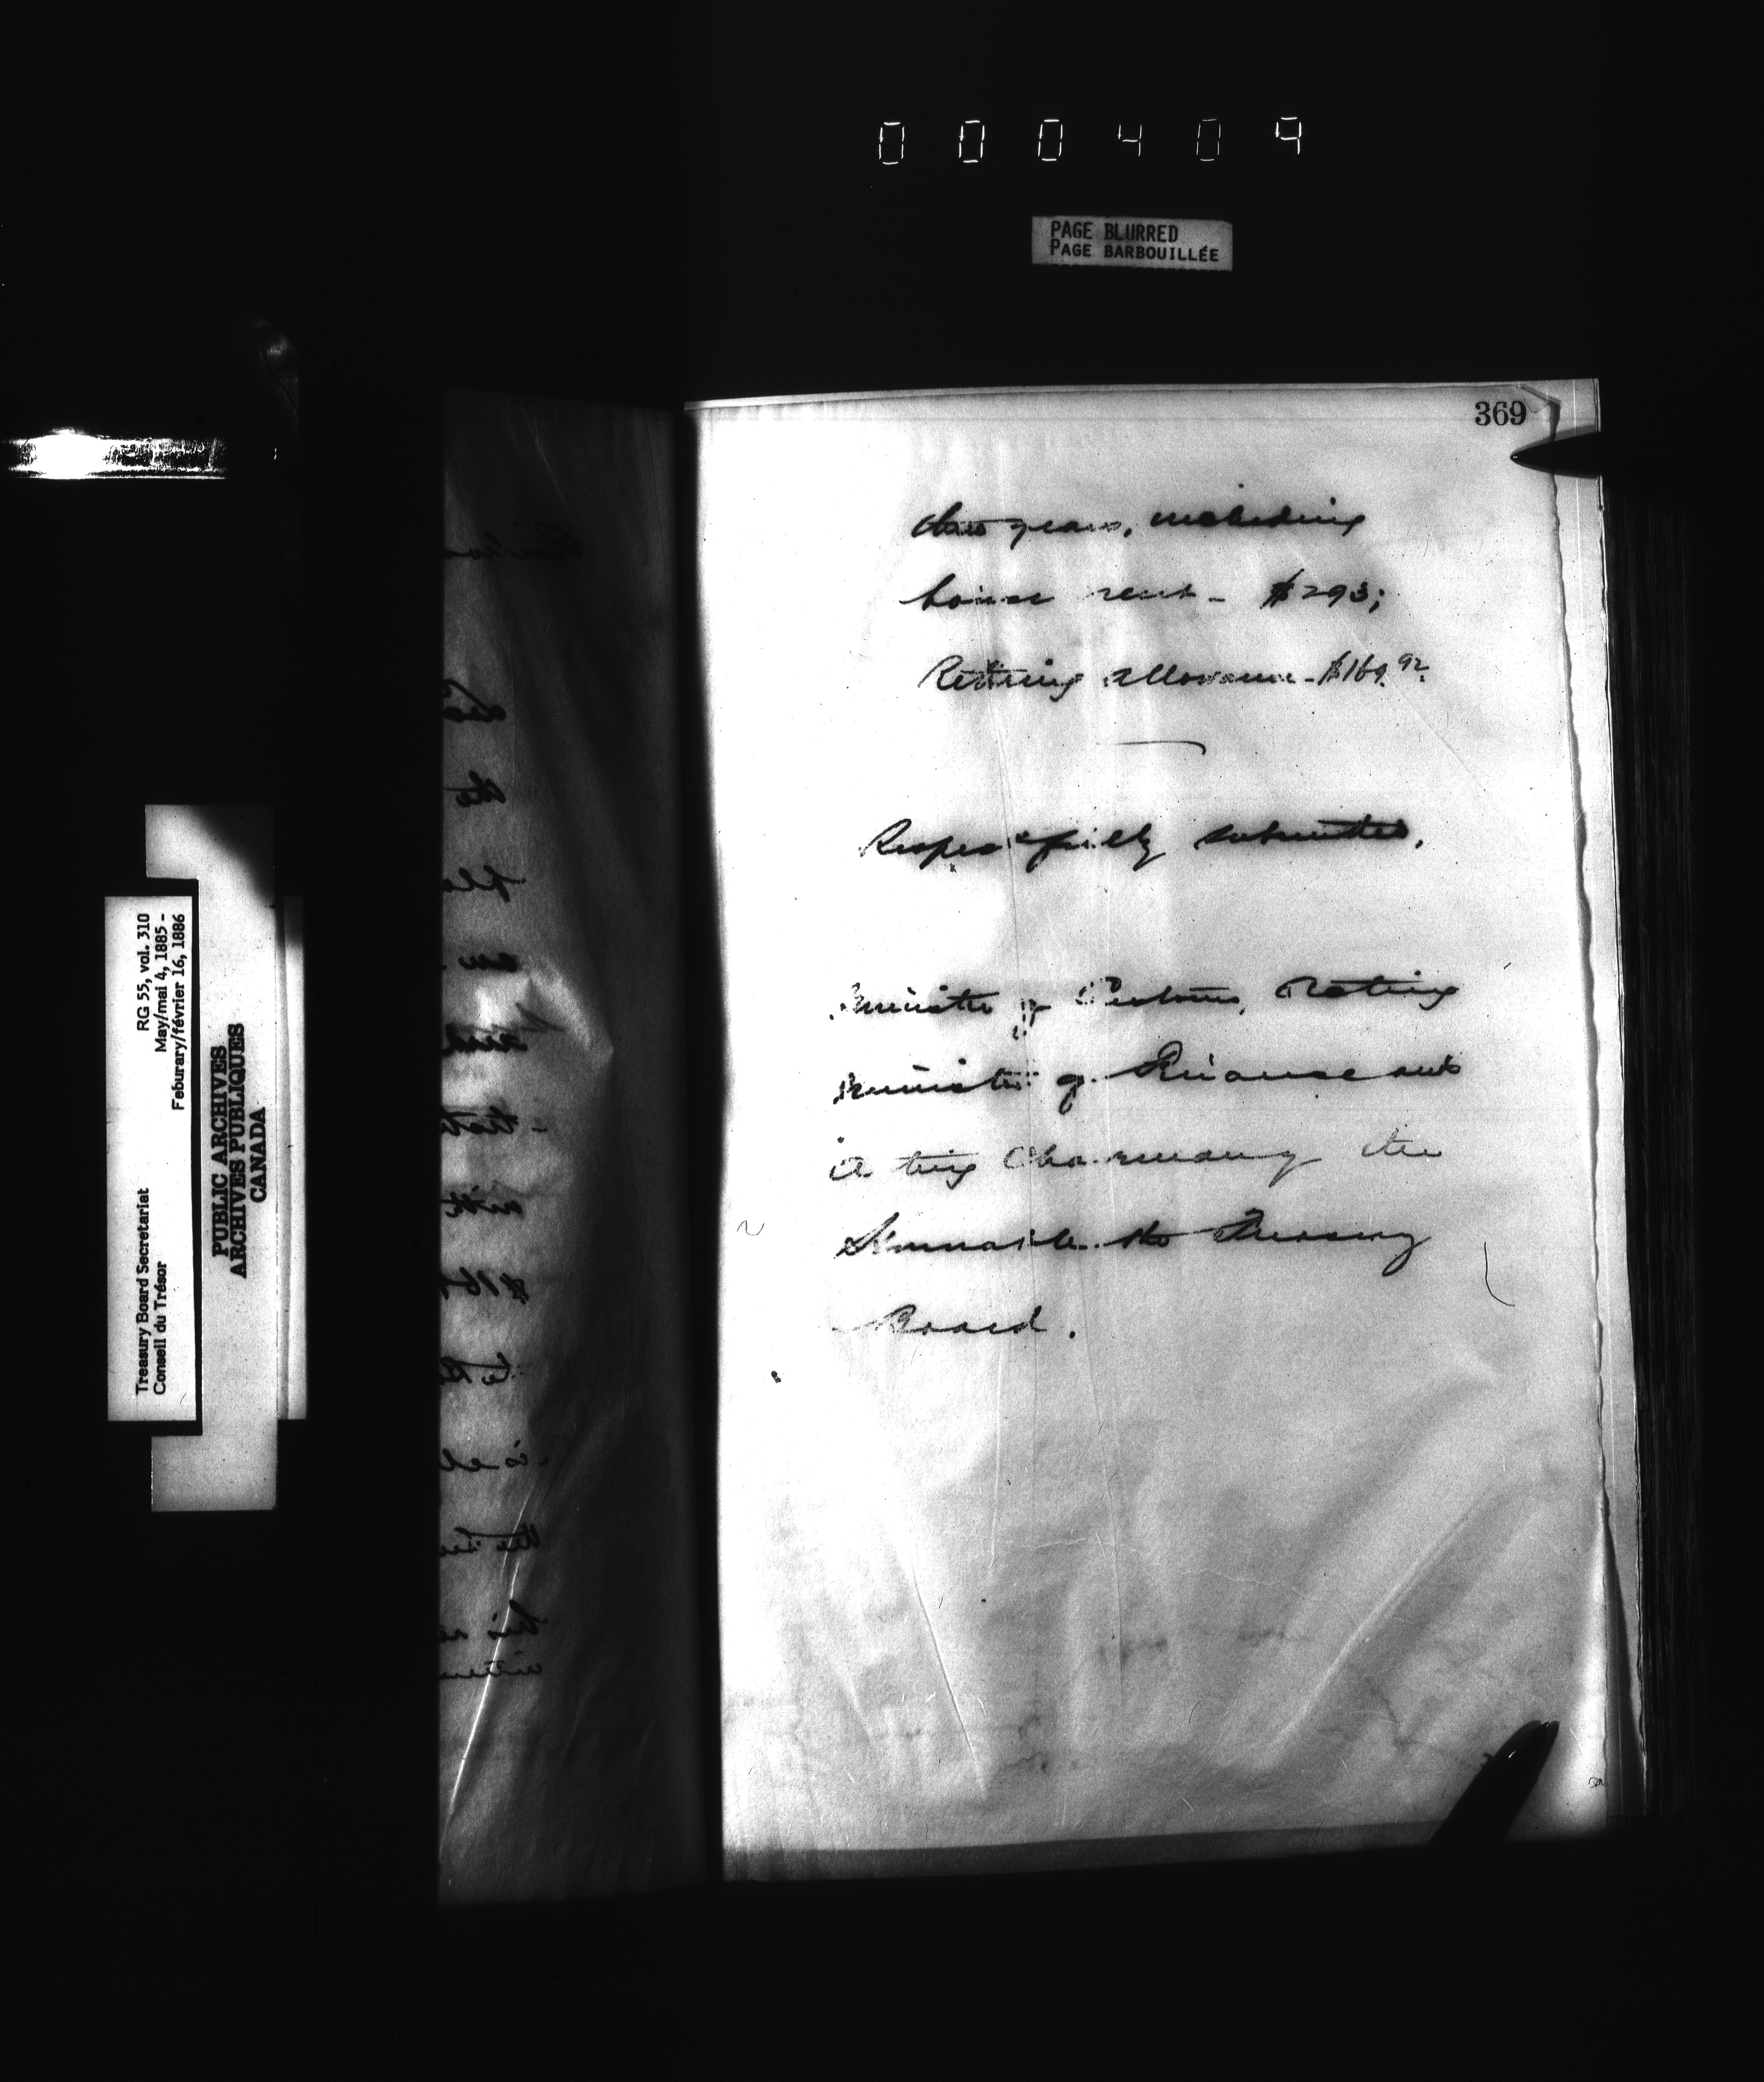 000409
PAGE BLURRED
PAGE BARBOUILLÉE
369
two years, including
house rent - $293;
Retiring allowance - $169.92
Respectfully submitted,
Minister of Customs, Acting
Minister of Finance and
Acting Chairman of the
Honorable the Treasury
Board.
Treasury Board Secretariat RG 55, vol. 310
Conseil du Trésor May/mai 4, 1885 -
Feburary/février 16, 1886
PUBLIC ARCHIVES
ARCHIVES PUBLIQUES
CANADA